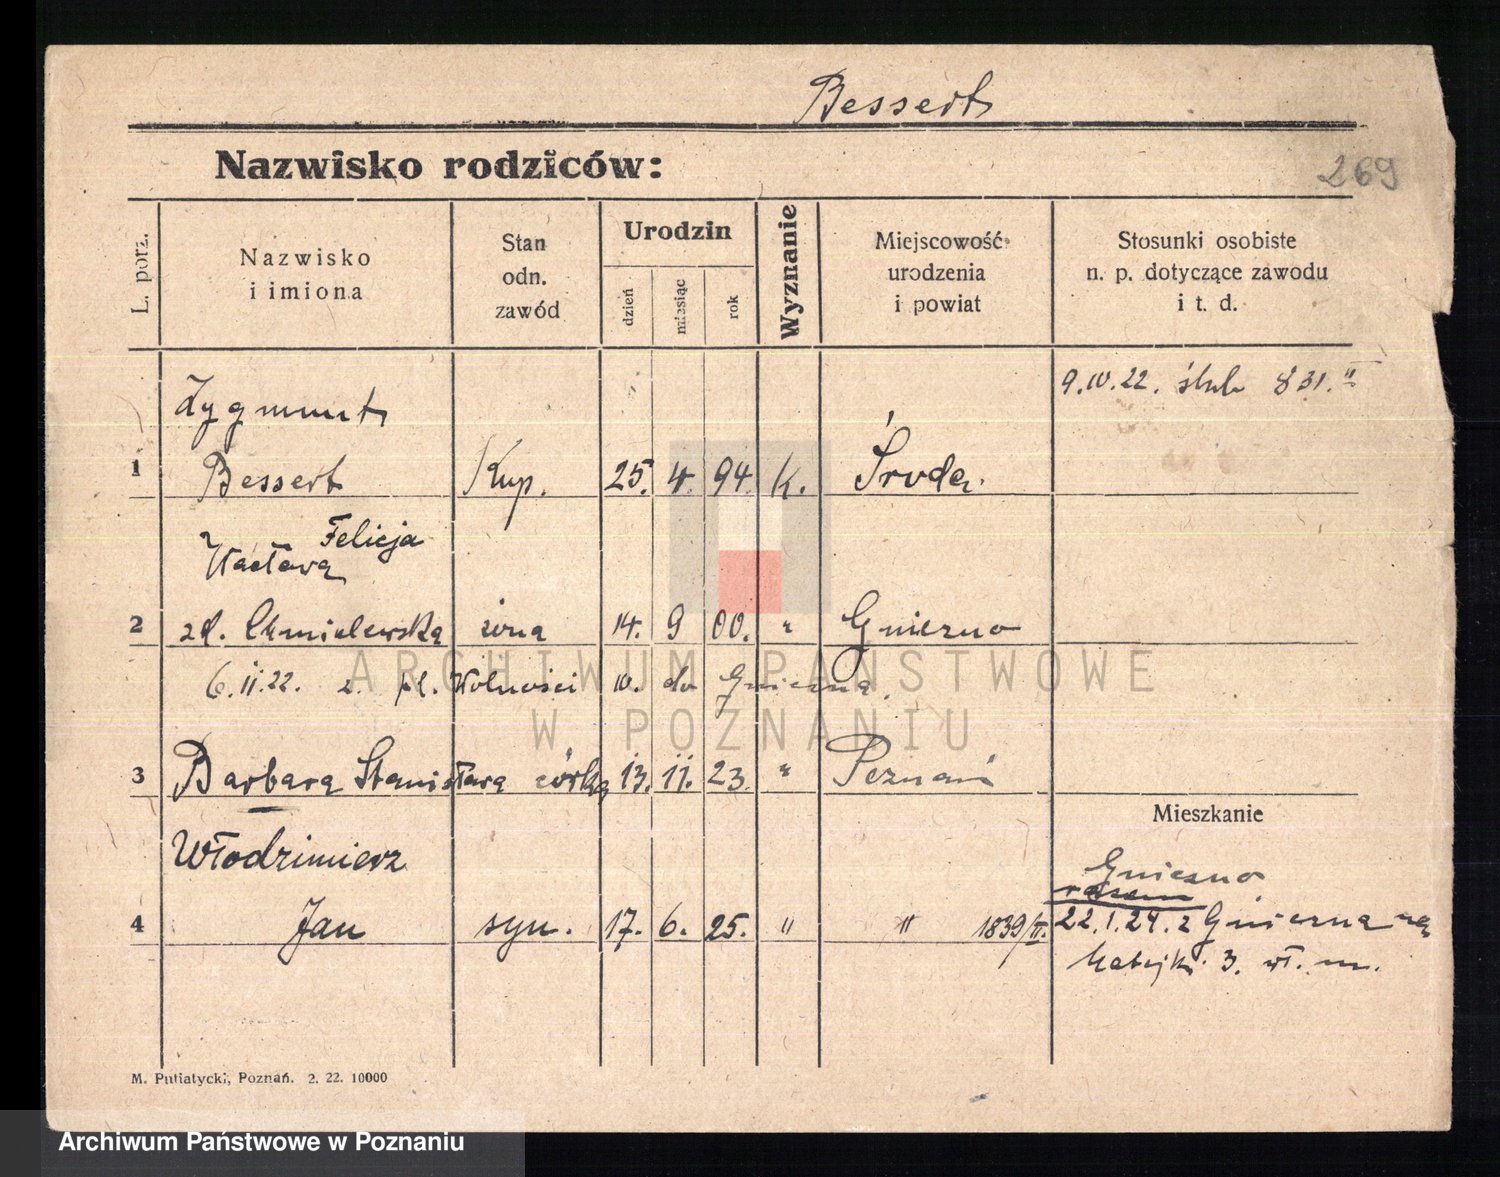 Bessert
Nazwisko rodziców:
269
L. porz.
Nazwisko
i imiona
Stan
odn.
zawód
Urodzin
dzień
miesiąc
rok
Wyznanie
Miejscowość
urodzenia
i powiat
Stosunki osobiste
n. p. dotyczące zawodu
i t. d.
9.IV.22. ślub 831.II
Zygmunt
1 Bessert Kup. 25. 4. 94. k. Środa.
Felicja
Wacława
2 zd. Chmielewska żona 14. 9 00. " Gniezno
6.II.22. z pl. Wolności 10. do Gniezna.
ARCHIWUM PAŃSTWOWE
W POZNANIU
3 Barbara Stanisława córka 13. 11. 23. " Poznań
Mieszkanie
Włodzimierz
Gniezno
razem
4 Jan syn. 17. 6. 25. " " 1839/II. 22.1.24. z Gniezna na
Matejki 3. wł. m.
M. Putiatycki, Poznań. 2. 22. 10000
Archiwum Państwowe w Poznaniu